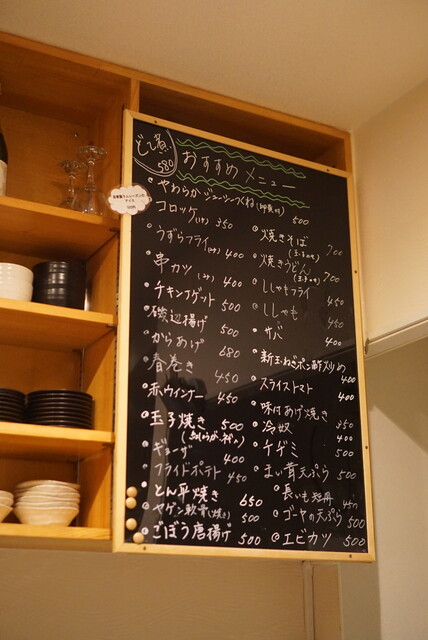 どて煮
580
おすすめメニュー
やわらかジューシーつくね(卵黄付) 500
コロッケ(1ヶ) 350
うずらフライ(2ヶ) 400
串カツ 400
チキンナゲット 500
磯辺揚げ 500
からあげ 680
春巻き 450
赤ウインナー 450
玉子焼き 500
ギョーザ 400
フライドポテト 450
とん平焼き 650
ヤゲン軟骨(焼き) 500
ごぼう唐揚げ 500
焼きそば 700
(玉子のせ)
焼きうどん 700
(玉子のせ)
ししゃもフライ 450
ししゃも 450
サバ 400
新玉ねぎポン酢炒め 400
スライストマト 400
味付あげ焼き 350
冷奴 400
チヂミ 500
まい茸天ぷら 500
長いも短冊 450
ゴーヤの天ぷら 500
エビカツ 500